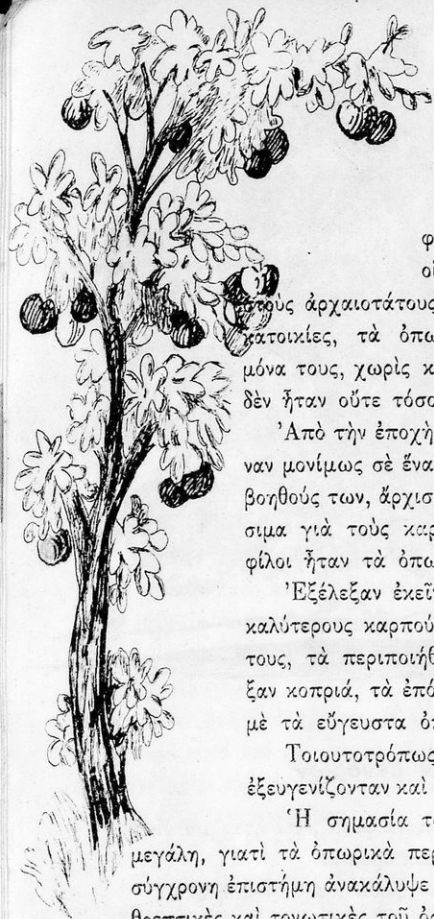 φ
οἱ
στοὺς ἀρχαιοτάτους
κατοικίες, τὰ ὀπω
μόνα τους, χωρὶς κ
δὲν ἦταν οὔτε τόσο
Ἀπὸ τὴν ἐποχὴ
ναν μονίμως σὲ ἕνα
βοηθούς των, ἄρχισ
σιμα γιὰ τοὺς καρ
φίλοι ἦταν τὰ ὀπω
Ἐξέλεξαν ἐκεῖν
καλύτερους καρποὺ
τους, τὰ περιποιήθ
ξαν κοπριά, τὰ ἐπό
μὲ τὰ εὔγευστα ὀ
Τοιουτοτρόπως
ἐξευγενίζονταν καὶ
Ἡ σημασία τ
μεγάλη, γιατὶ τὰ ὀπωρικὰ περ
σύγχρονη ἐπιστήμη ἀνακάλυψε
θρεπτικὲς καὶ τονωτικὲς τοῦ ὀ